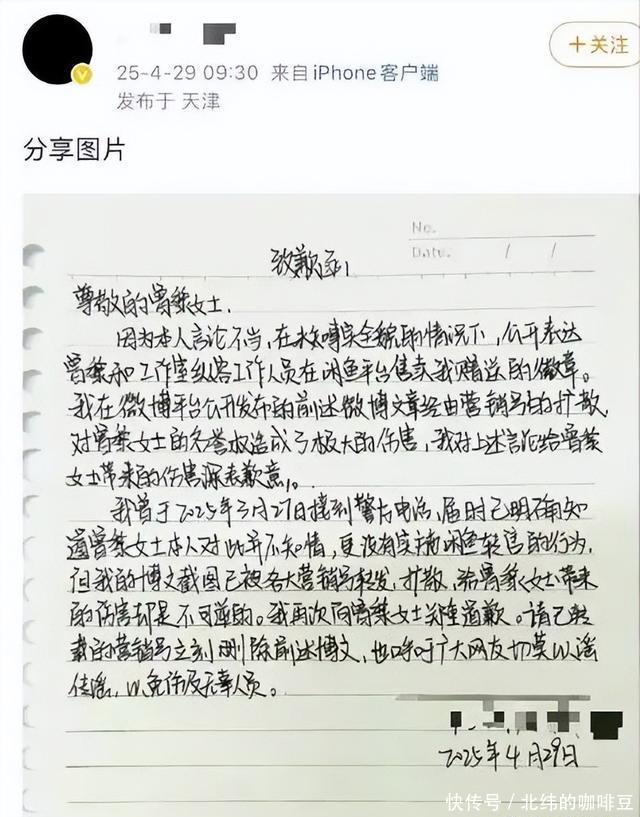 +关注
25-4-29 09:30 来自 iPhone客户端
发布于 天津
分享图片
No.
Date. / /
致歉函
尊敬的曾黎女士,
因为本人言论不当,在未知全貌的情况下,公开表达
曾黎和工作室纵容工作人员在闲鱼平台售卖我赠送的徽章。
我在微博平台公开发布的前述微博文章经由营销号的扩散,
对曾黎女士的名誉权造成了极大的伤害,我对上述言论给曾黎
女士带来的伤害深表歉意。
我曾于2025年3月27日接到警方电话,届时已明确知
道曾黎女士本人对此并不知情,更没有实施闲鱼转售的行为,
但我的博文截图已被各大营销号转发,扩散,给曾黎女士带来
的伤害却是不可逆的。我再次向曾黎女士郑重道歉。请已转
载的营销号立刻删除前述博文,也呼吁广大网友切莫以谣
传谣,以免伤及无辜人员。
2025年4月29日
快传号/北纬的咖啡豆